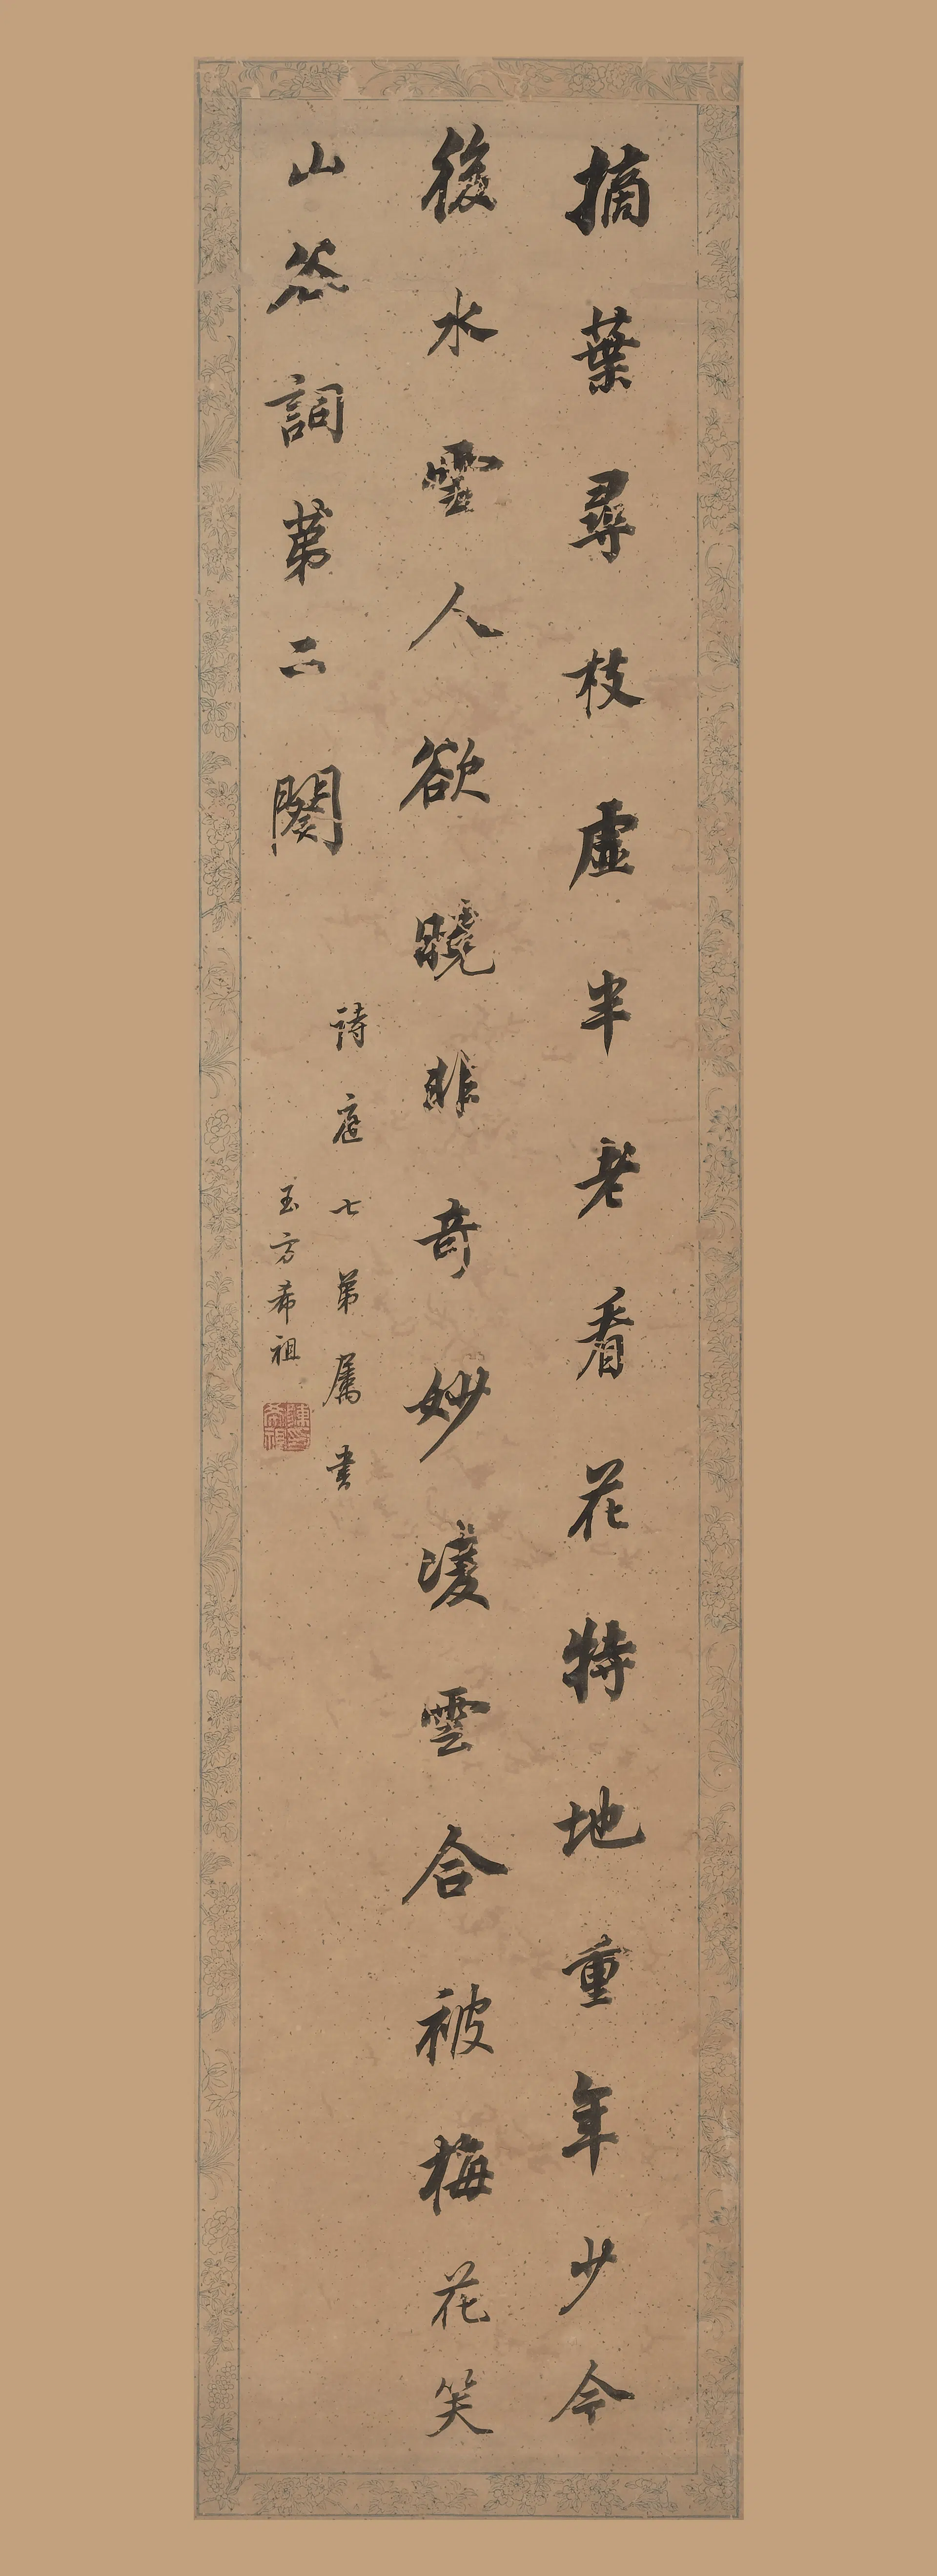 摘葉尋枝虛半老看花特地重年少今
後水雲人欲曉非奇妙凌雲合被梅花笑
山谷詞第二闋
詩庭七弟屬書
玉方希祖
陳希祖印